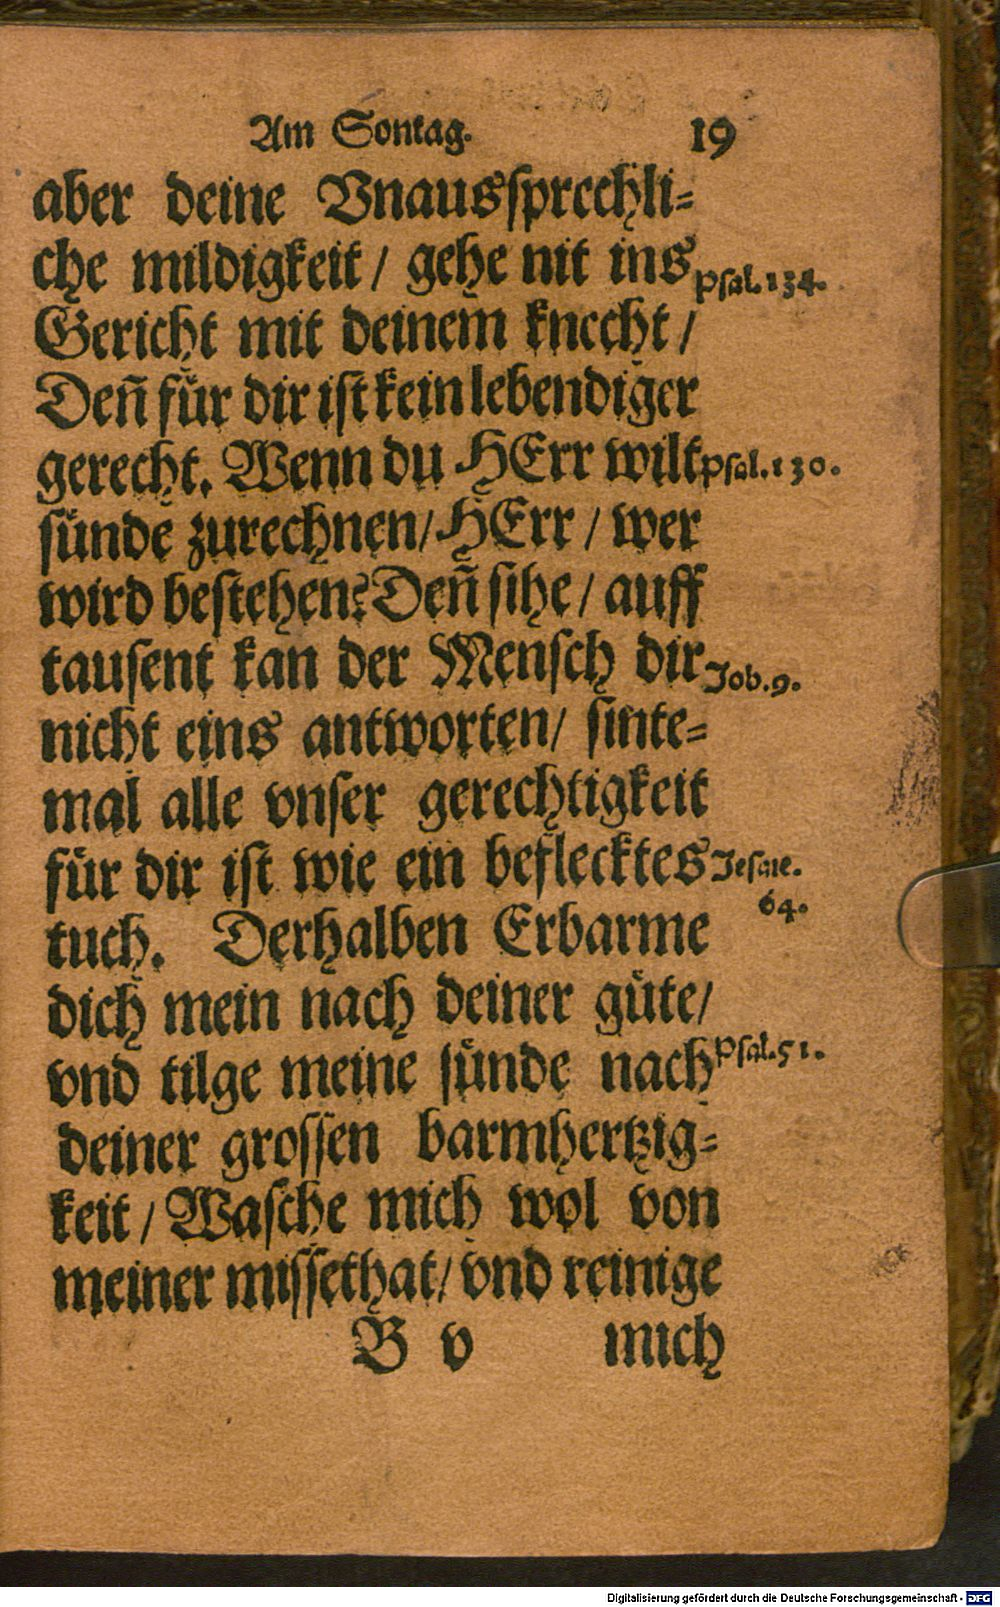 Am Sontag. 19
aber deine Vnaussprechli-
che mildigkeit / gehe nit ins
Psal. 134.
Gericht mit deinem knecht /
Deñ für dir ist kein lebendiger
gerecht. Wenn du HErr wilt
Psal. 130.
sünde zurechnen / HErr / wer
wird bestehen? Deñ sihe / auff
tausent kan der Mensch dir
Job. 9.
nicht eins antworten / sinte-
mal alle vnser gerechtigkeit
für dir ist wie ein beflecktes
Jesaie.
64.
tuch. Derhalben Erbarme
dich mein nach deiner güte /
vnd tilge meine sünde nach
Psal. 51.
deiner grossen barmhertzig-
keit / Wasche mich wol von
meiner missethat / vnd reinige
B v mich
Digitalisierung gefördert durch die Deutsche Forschungsgemeinschaft - DFG